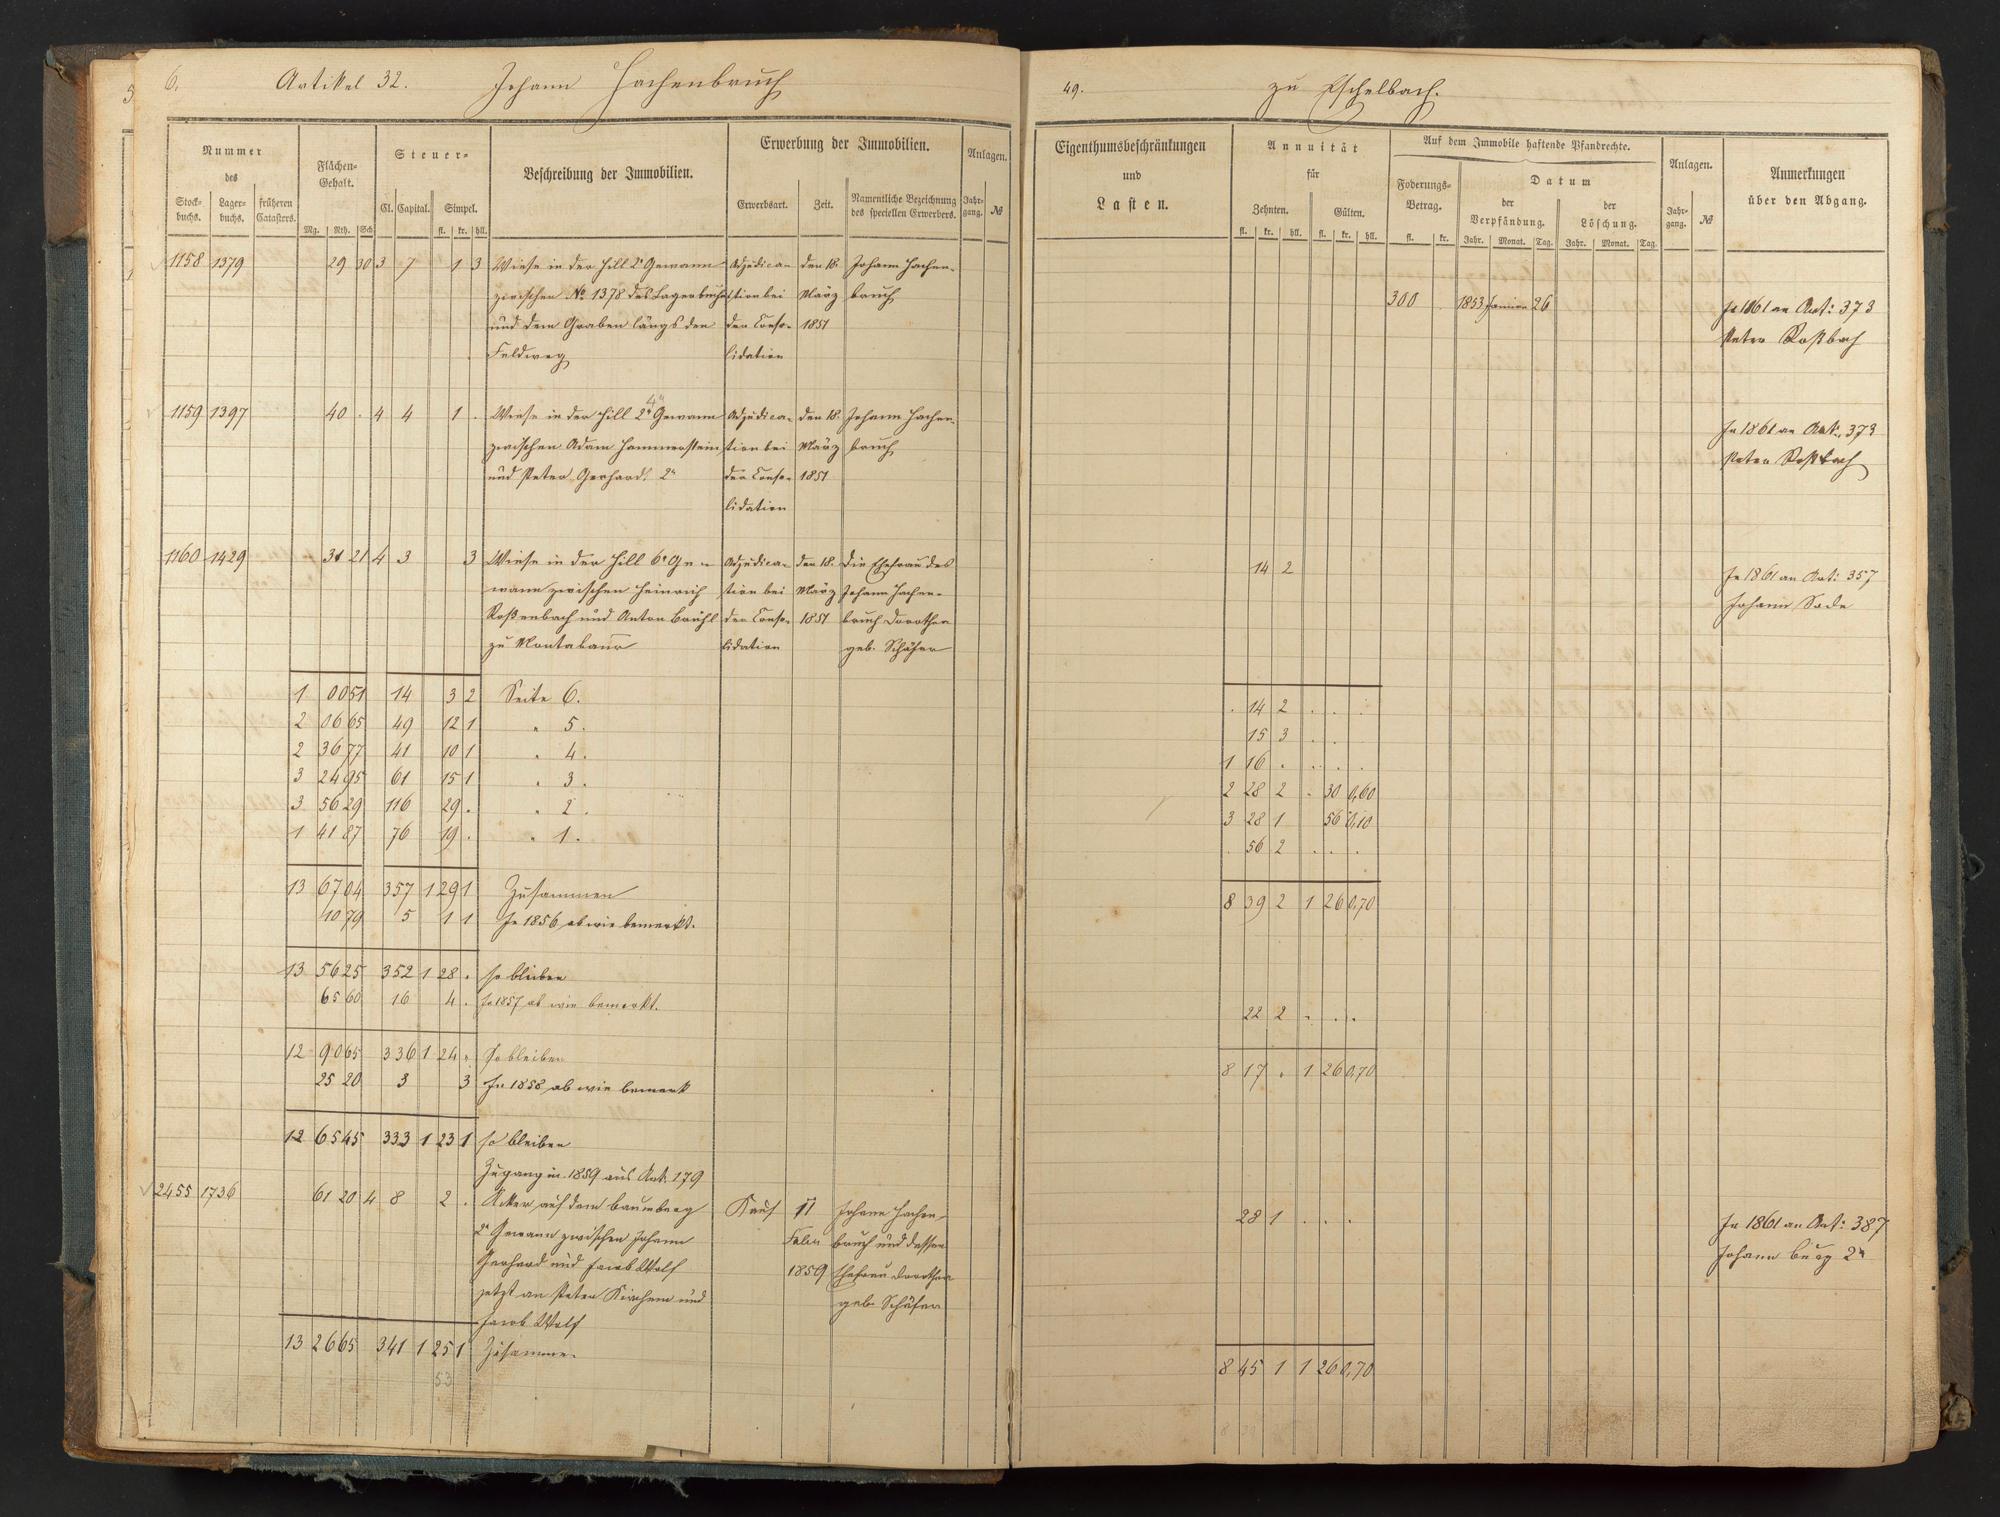 6. Artikel 32. Johann Hachenbruch
Nummer des
Stock-buchs. Lager-buchs. früheren Catasters.
Flächen-Gehalt.
Mg. Rth. Sch.
Steuer-
Cl. Capital. Simpel.
fl. kr. hll.
Beschreibung der Immobilien.
Erwerbung der Immobilien.
Erwerbsart. Zeit. Namentliche Bezeichnung des speciellen Erwerbers.
Anlagen.
Jahr-gang. №
1158 1379 29 30 3 7 1 3 Wiese in der Hill 2r Gewann Adjudica- den 18. Johann Hachen-
zwischen No 1378 des Lagerbuchs tion bei März bruch
und dem Graben längs dem der Conso- 1851
Feldweg lidation
1159 1397 40 . 4 4 1 . Wiese in der Hill 2r 4r Gewann Adjudica- den 18. Johann Hachen-
zwischen Adam Hammerstein tion bei März bruch
und Peter Gerhard 2r der Conso- 1851
lidation
1160 1429 31 21 4 3 3 Wiese in der Hill 6r Ge- Adjudica- den 18. Die Ehefrau des
wann zwischen Heinrich tion bei März Johann Hachen-
Roßenbach und Anton Brühl der Conso- 1851 bruch Dorothea
zu Montabaur lidation geb. Schäfer
1 00 51 14 3 2 Seite 6.
2 06 65 49 12 1 " 5.
2 36 77 41 10 1 " 4.
3 24 95 61 15 1 " 3.
3 56 29 116 29 . " 2.
1 41 87 76 19 . " 1.
13 67 04 357 1 29 1 Zusammen
10 79 5 1 1 In 1856 ab wie bemerkt.
13 56 25 352 1 28 . so bleiben
65 60 16 4 . In 1857 ab wie bemerkt.
12 90 65 336 1 24 . So bleiben
25 20 3 3 In 1858 ab wie bemerk
12 65 45 333 1 23 1 so bleiben
Zugang in 1859 aus Art. 179
2455 1736 61 20 4 8 2 . Acker auf dem Baumberg Kauf 11 Johann Hachen-
2r Gewann zwischen Johann Febr bruch und dessen
Gerhard und Jacob Wolf 1859 Ehefrau Dorothea
jetzt an Peter Kirchem und geb. Schäfer
Jacob Wolf
13 26 65 341 1 25 1 Zusammen
53
49. zu Eschelbach.
Eigenthumsbeschränkungen und Lasten.
Annuität für
Zehnten. Gülten.
fl. kr. hll. fl. kr. hll.
Auf dem Immobile haftende Pfandrechte.
Foderungs-Betrag.
fl. kr.
Datum
der Verpfändung. der Löschung.
Jahr. Monat. Tag. Jahr. Monat. Tag.
Anlagen.
Jahr-gang. №
Anmerkungen über den Abgang.
300 . 1853 Januar 26 In 1861 an Art: 373
Peter Roßbach
In 1861 an Art. 373
Peter Roßbach
14 2 In 1861 an Art: 357
Johann Sode
. 14 2 . . .
15 3 . .
1 16 . . . .
2 28 2 . 30 0,60
3 28 1 56 0,10
. 56 2 . . .
8 39 2 1 26 0,70
22 2 . . .
8 17 . 1 26 0,70
28 1 . . . In 1861 an Art: 387
Johann Burg 2r
8 45 1 1 26 0,70